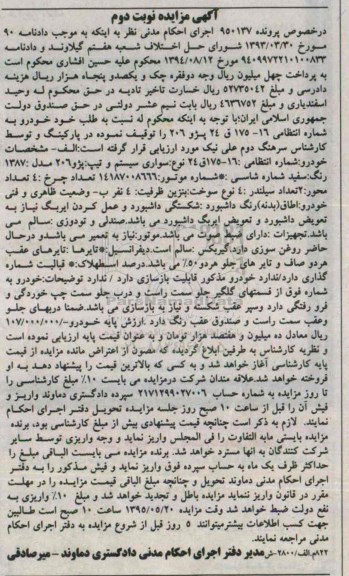 آگهی مزایده نوبت دوم
درخصوص پرونده ۹۵۰۱۳۷ اجرای احکام مدنی نظر به اینکه به موجب دادنامه ۹۰
مورخ ۱۳۹۳/۰۳/۳۰ شورای حل اختلاف شعبه هفتم گیلاوند و دادنامه
۹۴۰۹۹۷۲۲۱۰۱۰۰۸۳۳ مورخ ۱۳۹۴/۰۸/۱۲ محکوم علیه حسین افشاری محکوم است
به پرداخت چهل میلیون ریال وجه دوفقره چک و یکصدو پنجاه هزار ریال هزینه
دادرسی و مبلغ ۵۲۷۳۵۰۴۲ ریال خسارت تاخیر تادیه در حق محکوم له وحید
اسفندیاری و مبلغ ۴۶۳۷۷۵۲ ریال بابت نیم عشر دولتی در حق صندوق دولت
جمهوری اسلامی ایران؛با توجه به اینکه محکوم له نسبت به طلب خود خودرو به
شماره انتظامی ۱۶- ۱۷۵ ق ۲۴ پژو ۲۰۶ را توقیف نموده در پارکینگ و توسط
کارشناس سرهنگ دوم علی نیک مورد ارزیابی قرار گرفته است:الف- مشخصات
خودرو:شماره انتظامی :۱۶-۱۷۵ق۲۴ نوع:سواری سیستم و تیپ:پژو۲۰۶ مدل :۱۳۸۷
رنگ:سفید شماره شاسی :* شماره موتور:۱۴۱۸۷۰۰۸۶۶۶ تعداد چرخ :۴ تعداد
محور:۲تعداد سیلندر :۴ نوع سوخت:بنزین ظرفیت: ۴ نفر ب- وضعیت ظاهری و فنی
خودرو:اطاق(بدنه)رنگ داشبورد :شکستگی داشبورد و عمل کردن ایربگ نیاز به
تعویض داشبورد و تعویض ایربگ داشبورد می باشد.صندلی و تودوزی :سالم می
باشد.تجهیزات :دارای ضبط صوت می باشد.موتور:نیاز به تعمیر می باشدو درحال
حاضر روغن سوزی دارد.گیربکس :سالم است.دیفرانسیل:*تایرها :تایرهای عقب
هردو صاف و تایر های جلو هردو ۵۰٪ می باشد.درصد استهلاک:* قبالیت شماره
گذاری دارد/ندارد خودرو مذکور قابلیت بازسازی دارد / ندارد توضیحات:خودرو به
شماره فوق از قسمتهای گلگیر جلو سمت راست و درب جلو سمت چپ خوردگی و
فرو رفتگی دارد وسپر عقب شکست و نیاز به بازسازی می باشد.ضمنا دربهای جلو
وعقب سمت راست و صندوق عقب رنگ دارد .ارزش پایه خودرو-/۱۰۷/۰۰۰/۰۰۰
ریال معادل ده میلیون و هفتصد هزار تومان و به عنوان قیمت پایه ارزیابی نموده است
و نظریه کارشناس به طرفین ابلاغ گردیده که مصون از اعتراض مانده مزایده از قیمت
پایه کارشناسی آغاز خواهد شد و به کسی که بالاترین قیمت را پیشنهاد دهد به او
فروخته خواهد شد.علاقه مندان شرکت درمزایده می بایست ۱۰٪ مبلغ کارشناسی را
تا روز مزایده به شماره حساب ۲۱۷۱۲۹۹۰۲۷۰۰۶ سپرده دادگستری دماوند واریز و
فیش آن را قبل از ساعت ۱۰ صبح روز جلسه مزایده تحویل دفتر اجرای احکام
نمایند. لازم به ذکر است چنانچه قیمت پیشنهادی بیش از مبلغ کارشناسی بود، برنده
مزایده بایستی مابه التفاوت را فی المجلس واریز نماید و وجه واریزی توسط سایر
شرکت کنندگان به انها مسترد خواهد شد. برنده مزایده می بایست الباقی مبلغ را
حداکثر ظرف یک ماه به حساب سپرده فوق واریز نماید و فیش مذکور را به دفتر
اجرای احکام مدنی دماوند تحویل و چنانچه مبلغ الباقی قیمت مزایده را در مهلت
مقرر در قانون واریز ننماید مزایده باطل و تجدید خواهد شد و مبلغ ۱۰٪ واریزی به
نفع دولت ضبط خواهد شد وقت مزایده ۱۳۹۵/۰۵/۲۰ ساعت ۱۰ صبح است طالبین
جهت کسب اطلاعات بیشترمیتوانند ۵ روز قبل از شروع مزایده به دفتر اجرای احکام
مدنی مراجعه نمایند.
۸۲۲م.الف/۲۸۰۰-ش مدیر دفتر اجرای احکام مدنی دادگستری دماوند – میرصادقی